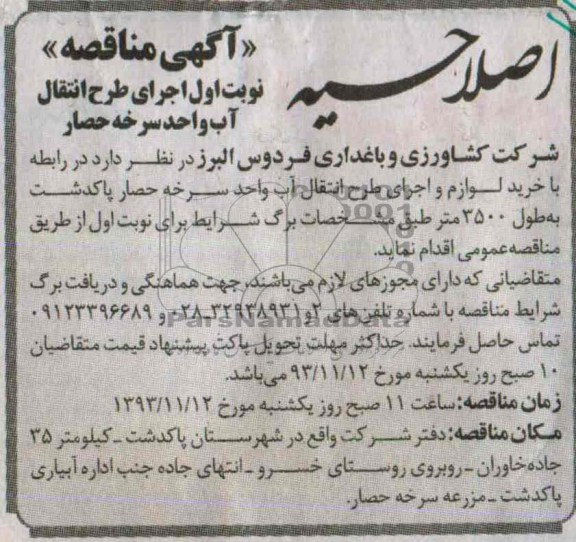 اصلاحیه
«آگهی مناقصه»
نوبت اول اجرای طرح انتقال
آب واحد سرخه حصار
شرکت کشاورزی و باغداری فردوس البرز در نظر دارد در رابطه
با خرید لوازم و اجرای طرح انتقال آب واحد سرخه حصار پاکدشت
به‌طول ۳۵۰۰ متر طبق مشخصات برگ شرایط برای نوبت اول از طریق
مناقصه‌عمومی اقدام نماید.
متقاضیانی که دارای مجوزهای لازم می‌باشند، جهت هماهنگی و دریافت برگ
شرایط مناقصه با شماره تلفن‌های ۲و۳۲۹۳۸۹۳۱-۰۲۸ و ۰۹۱۲۳۳۹۶۶۸۹
تماس حاصل فرمایند. حداکثر مهلت تحویل پاکت پیشنهاد قیمت متقاضیان
۱۰ صبح روز یکشنبه مورخ ۹۳/۱۱/۱۲ می‌باشد.
زمان مناقصه: ساعت ۱۱ صبح روز یکشنبه مورخ ۱۳۹۳/۱۱/۱۲
مکان مناقصه: دفتر شرکت واقع در شهرستان پاکدشت ـ کیلومتر ۳۵
جاده‌خاوران ـ روبروی روستای خسرو ـ انتهای جاده جنب اداره آبیاری
پاکدشت ـ مزرعه سرخه حصار.
ParsNamadData